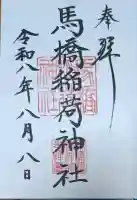 奉拝
馬橋稲荷神社
令和八年八月八日